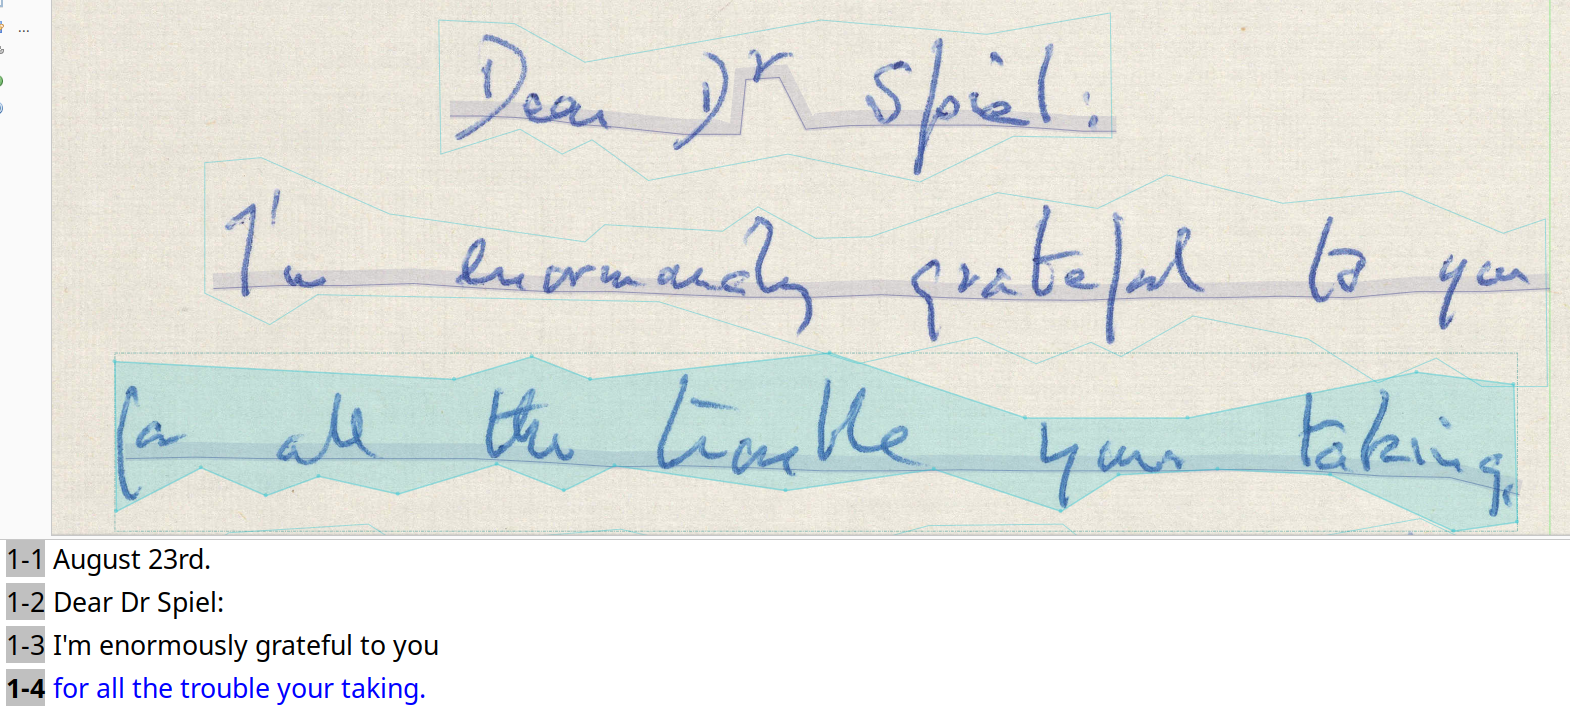 ...
Dear Dr Spiel:
I'm enormously grateful to you
for all the trouble your taking.
1-1 August 23rd.
1-2 Dear Dr Spiel:
1-3 I'm enormously grateful to you
1-4 for all the trouble your taking.